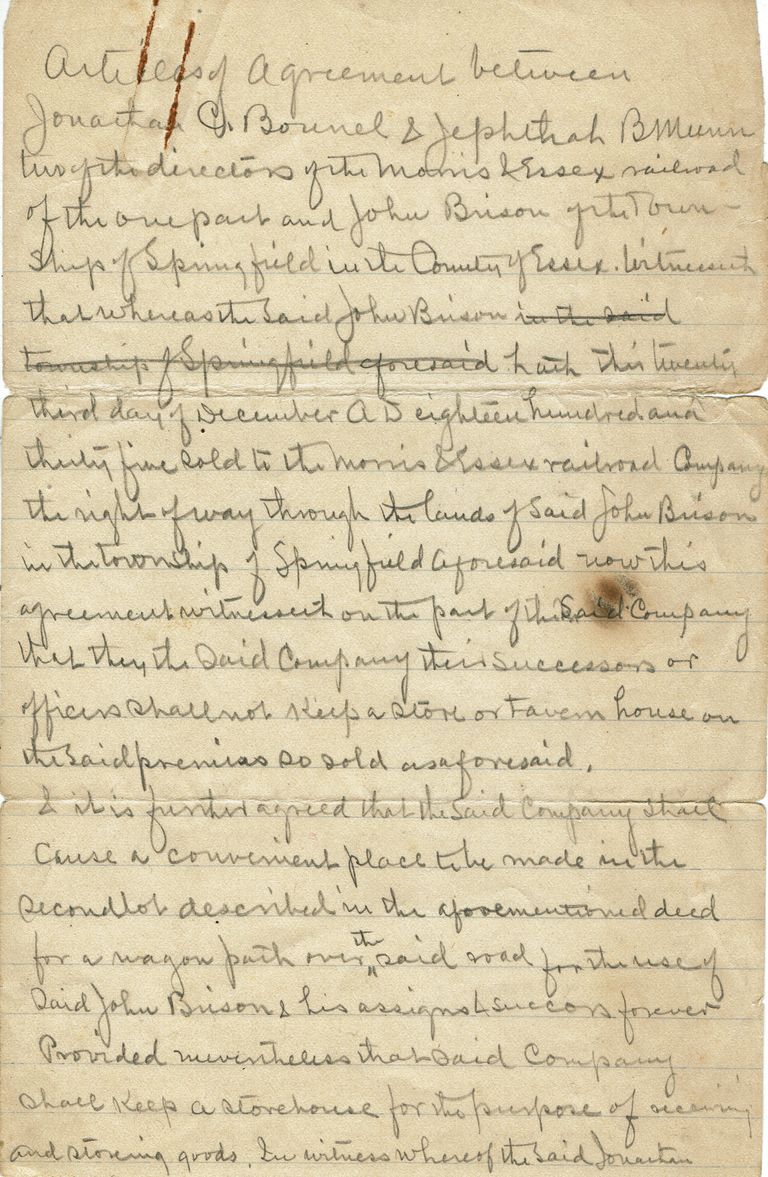 Articles of Agreement between
Jonathan C. Bonnel & Jephthah B Munn
two of the directors of the Morris & Essex railroad
of the one part and John Brison of the Town-
Ship of Springfield in the County of Essex. Witnesseth
that whereas the Said John Brison in the said
township of Springfield aforesaid hath this twenty
third day of December A D eighteen hundred and
thirty five sold to the Morris & Essex railroad Company
the right of way through the lands of Said John Brison
in the township of Springfield aforesaid now this
agreement witnesseth on the part of the Said Company
that they the Said Company their successors or
officers shall not Keep a store or tavern house on
the Said premises so sold as aforesaid.
& it is further agreed that the Said Company shall
Cause a convenient place to be made in the
second lot described in the aforementioned deed
for a wagon path over the said road for the use of
Said John Brison & his assigns & succors forever
Provided nevertheless that said Company
shall Keep a storehouse for the purpose of receiving
and storeing goods. In witness whereof the Said Jonathan